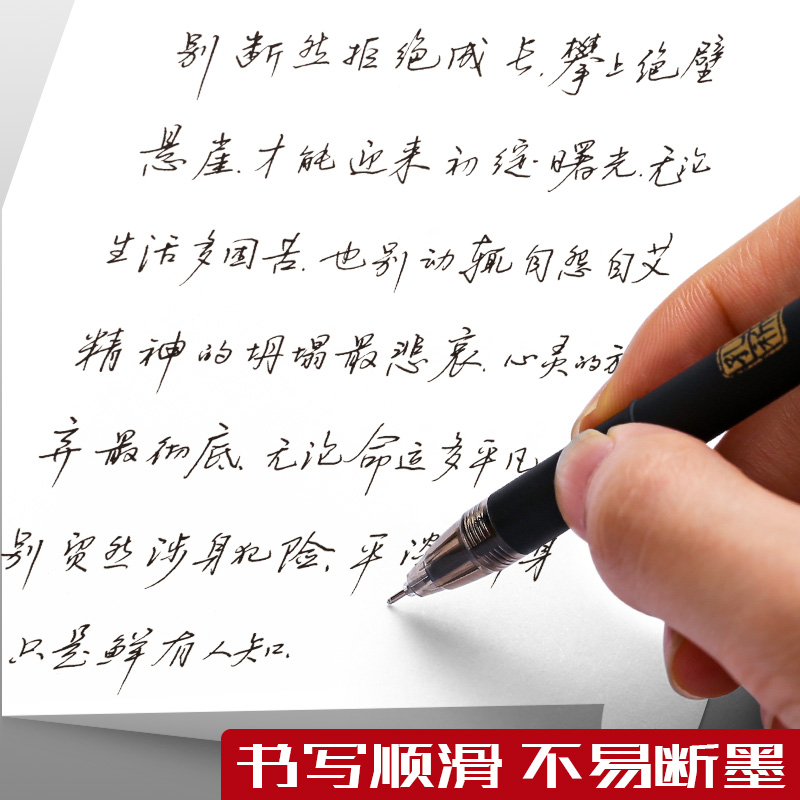 别断然拒绝成长.攀上绝壁
悬崖.才能迎来初绽曙光.无论
生活多困苦.也别动辄自怨自艾
精神的坍塌最悲哀.心灵的
弃最彻底.无论命运多平凡
别贸然涉身犯险.平淡身
只是鲜有人知.
书写顺滑 不易断墨